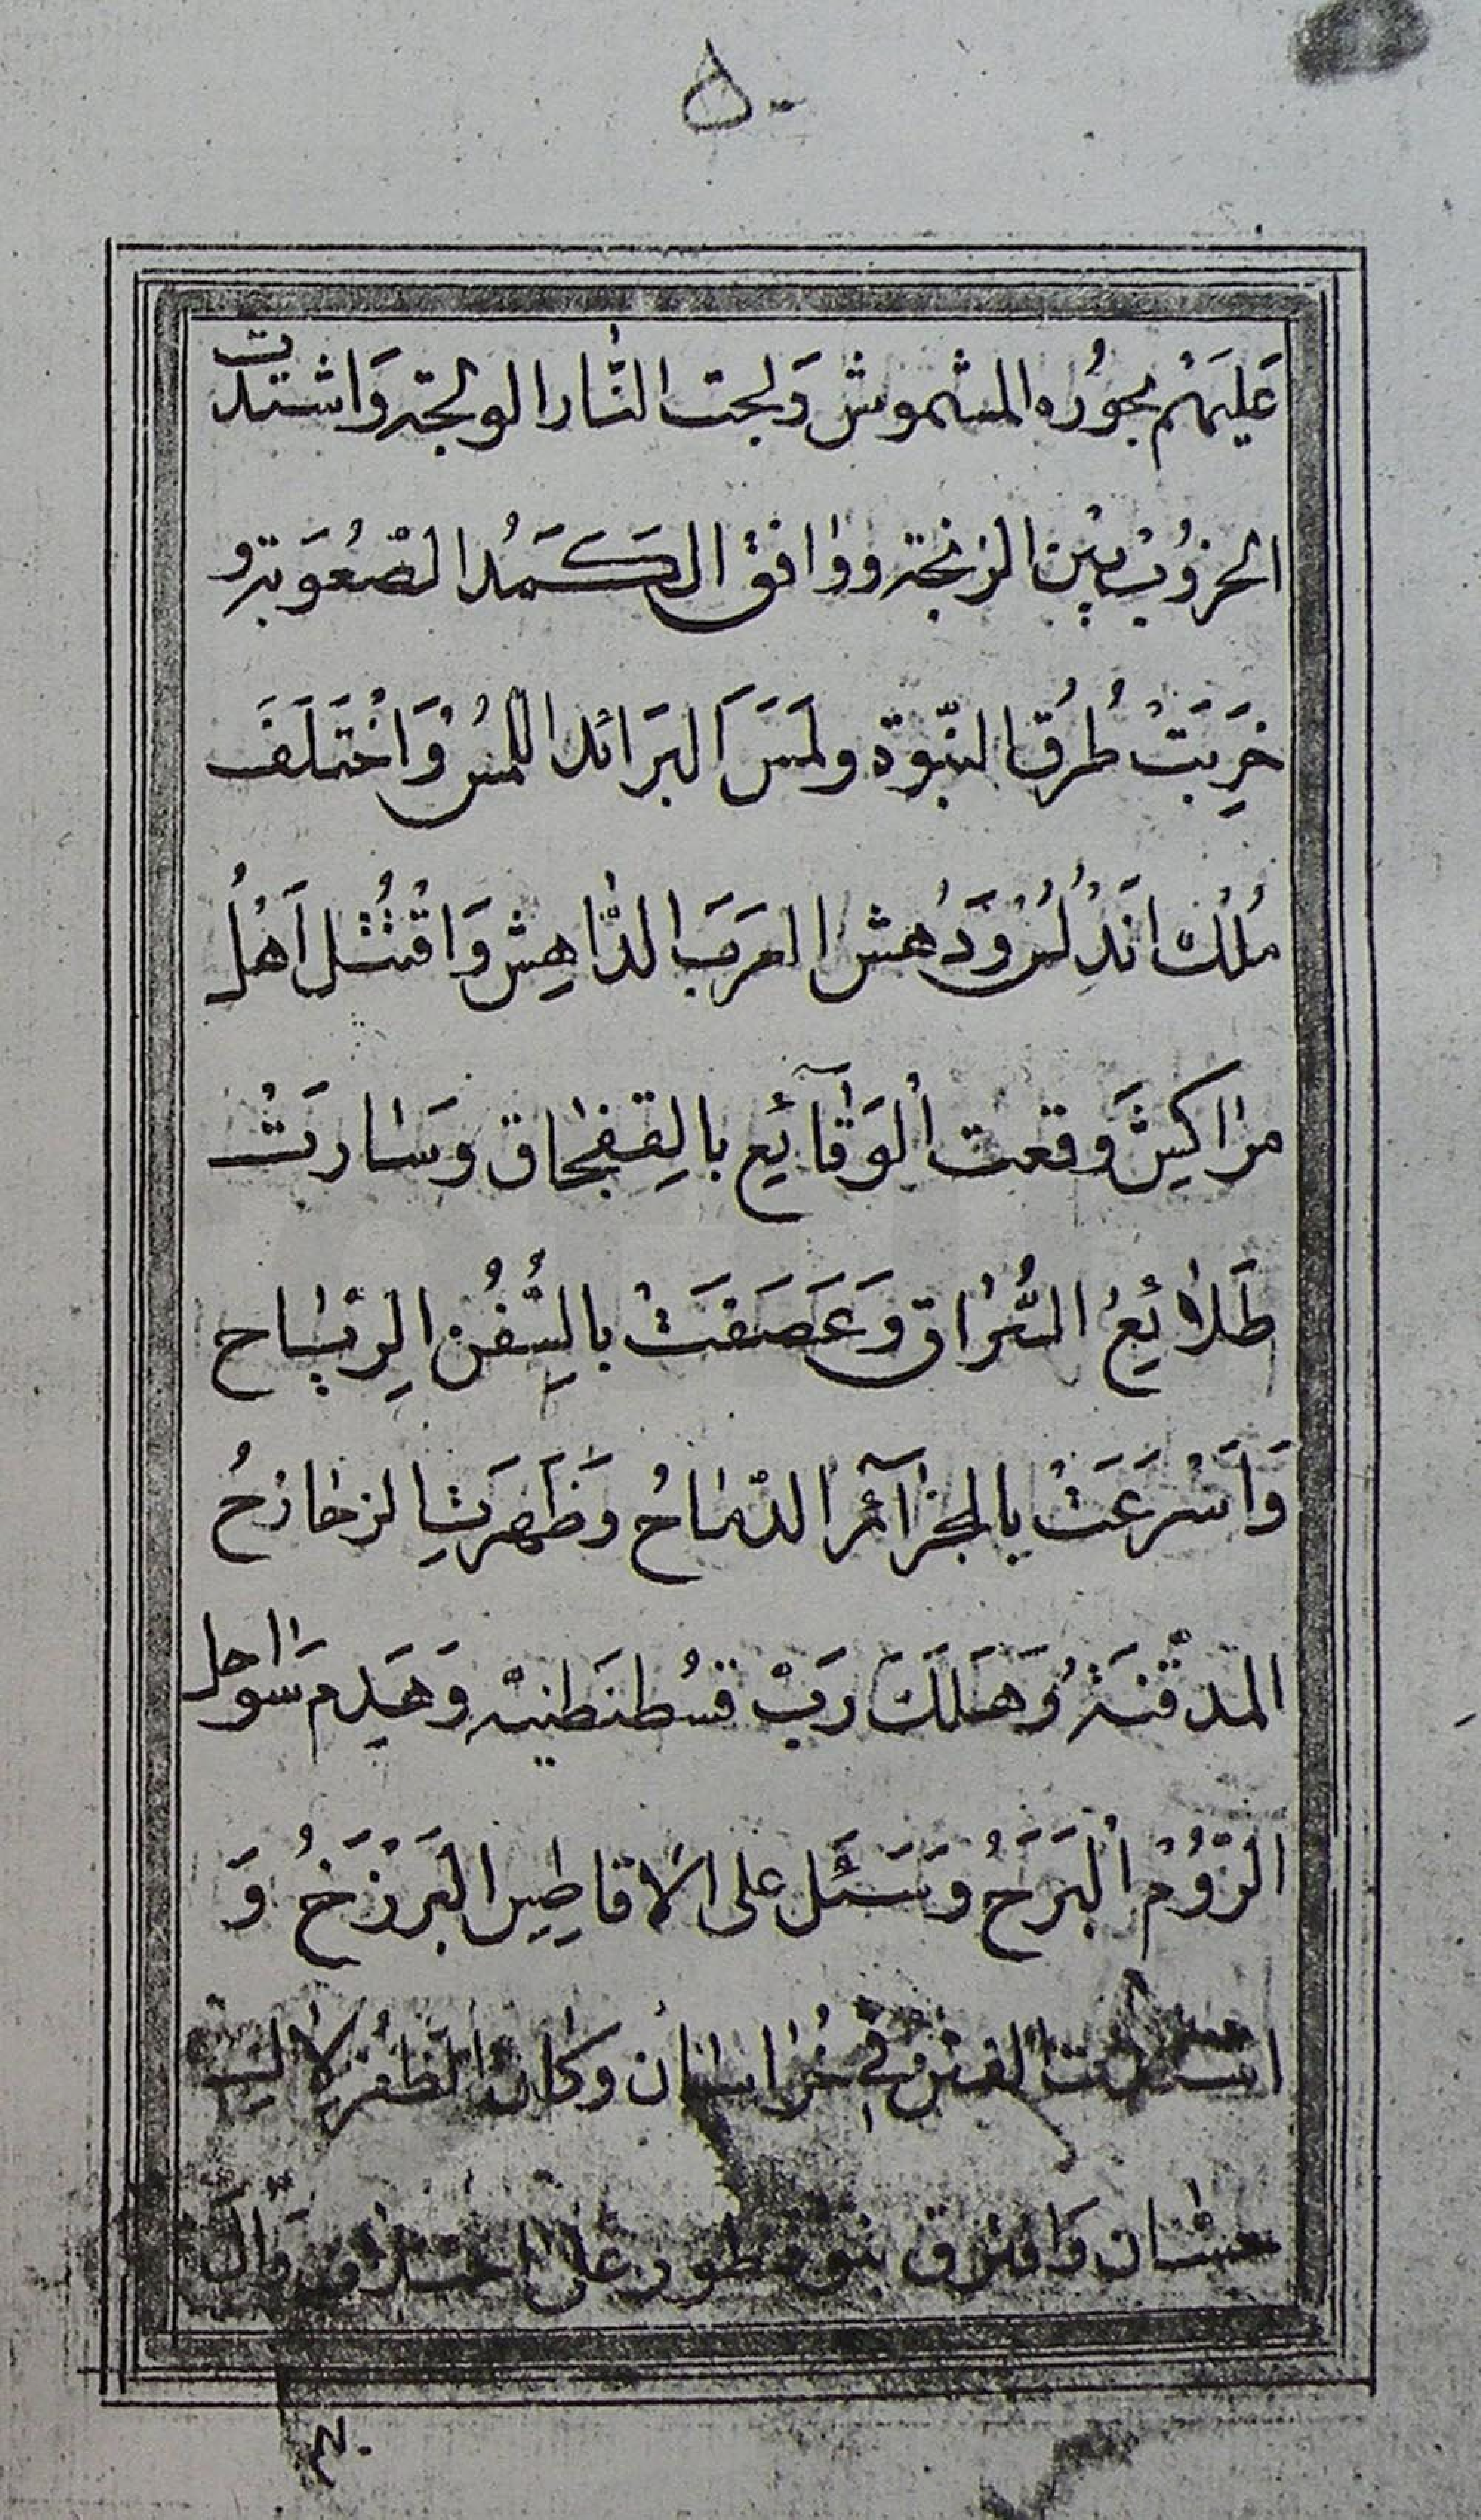 ۵۰
عَلَيهَمْ بجوُره المشموش وَلجت النَّار الولجة وَاشتدت
الحروُبْ بيْن الزنجة ووافق الكَمَدُ الصْعُوَبة و
خَرِبَتْ طُرق النبّوة ولمَسَ البَرَائد اللمسُ وَاخْتَلَفَ
مُلْك اَنَدِلُسْ وَدُهش العرَبَ الدَّاهِش وَاقْتُتُل اَهْلُ
مراكيشَ وقعت اْلوَقآئِع بالِقفجاق وَسَارَتْ
طَلائِعُ العُرْاق وَعَصَفَتْ بالِسُّفُن الِريَاح
وَاَسْرَعَتْ بالجزآئر الدمَاحُ وَظَهرتِ الزخازحُ
المدقنَةُ وَهَلَكَ رَبْ قسُطنَطنيه وَهَدِم سَواحل
الرّوُمْ اْلبَرَحُ وسَئَل على الاقاطِير البَرَزَخُ وَ
الفتن في خُراسان وكان الظفر لال
وَافترق بنو قطور على وال
م.